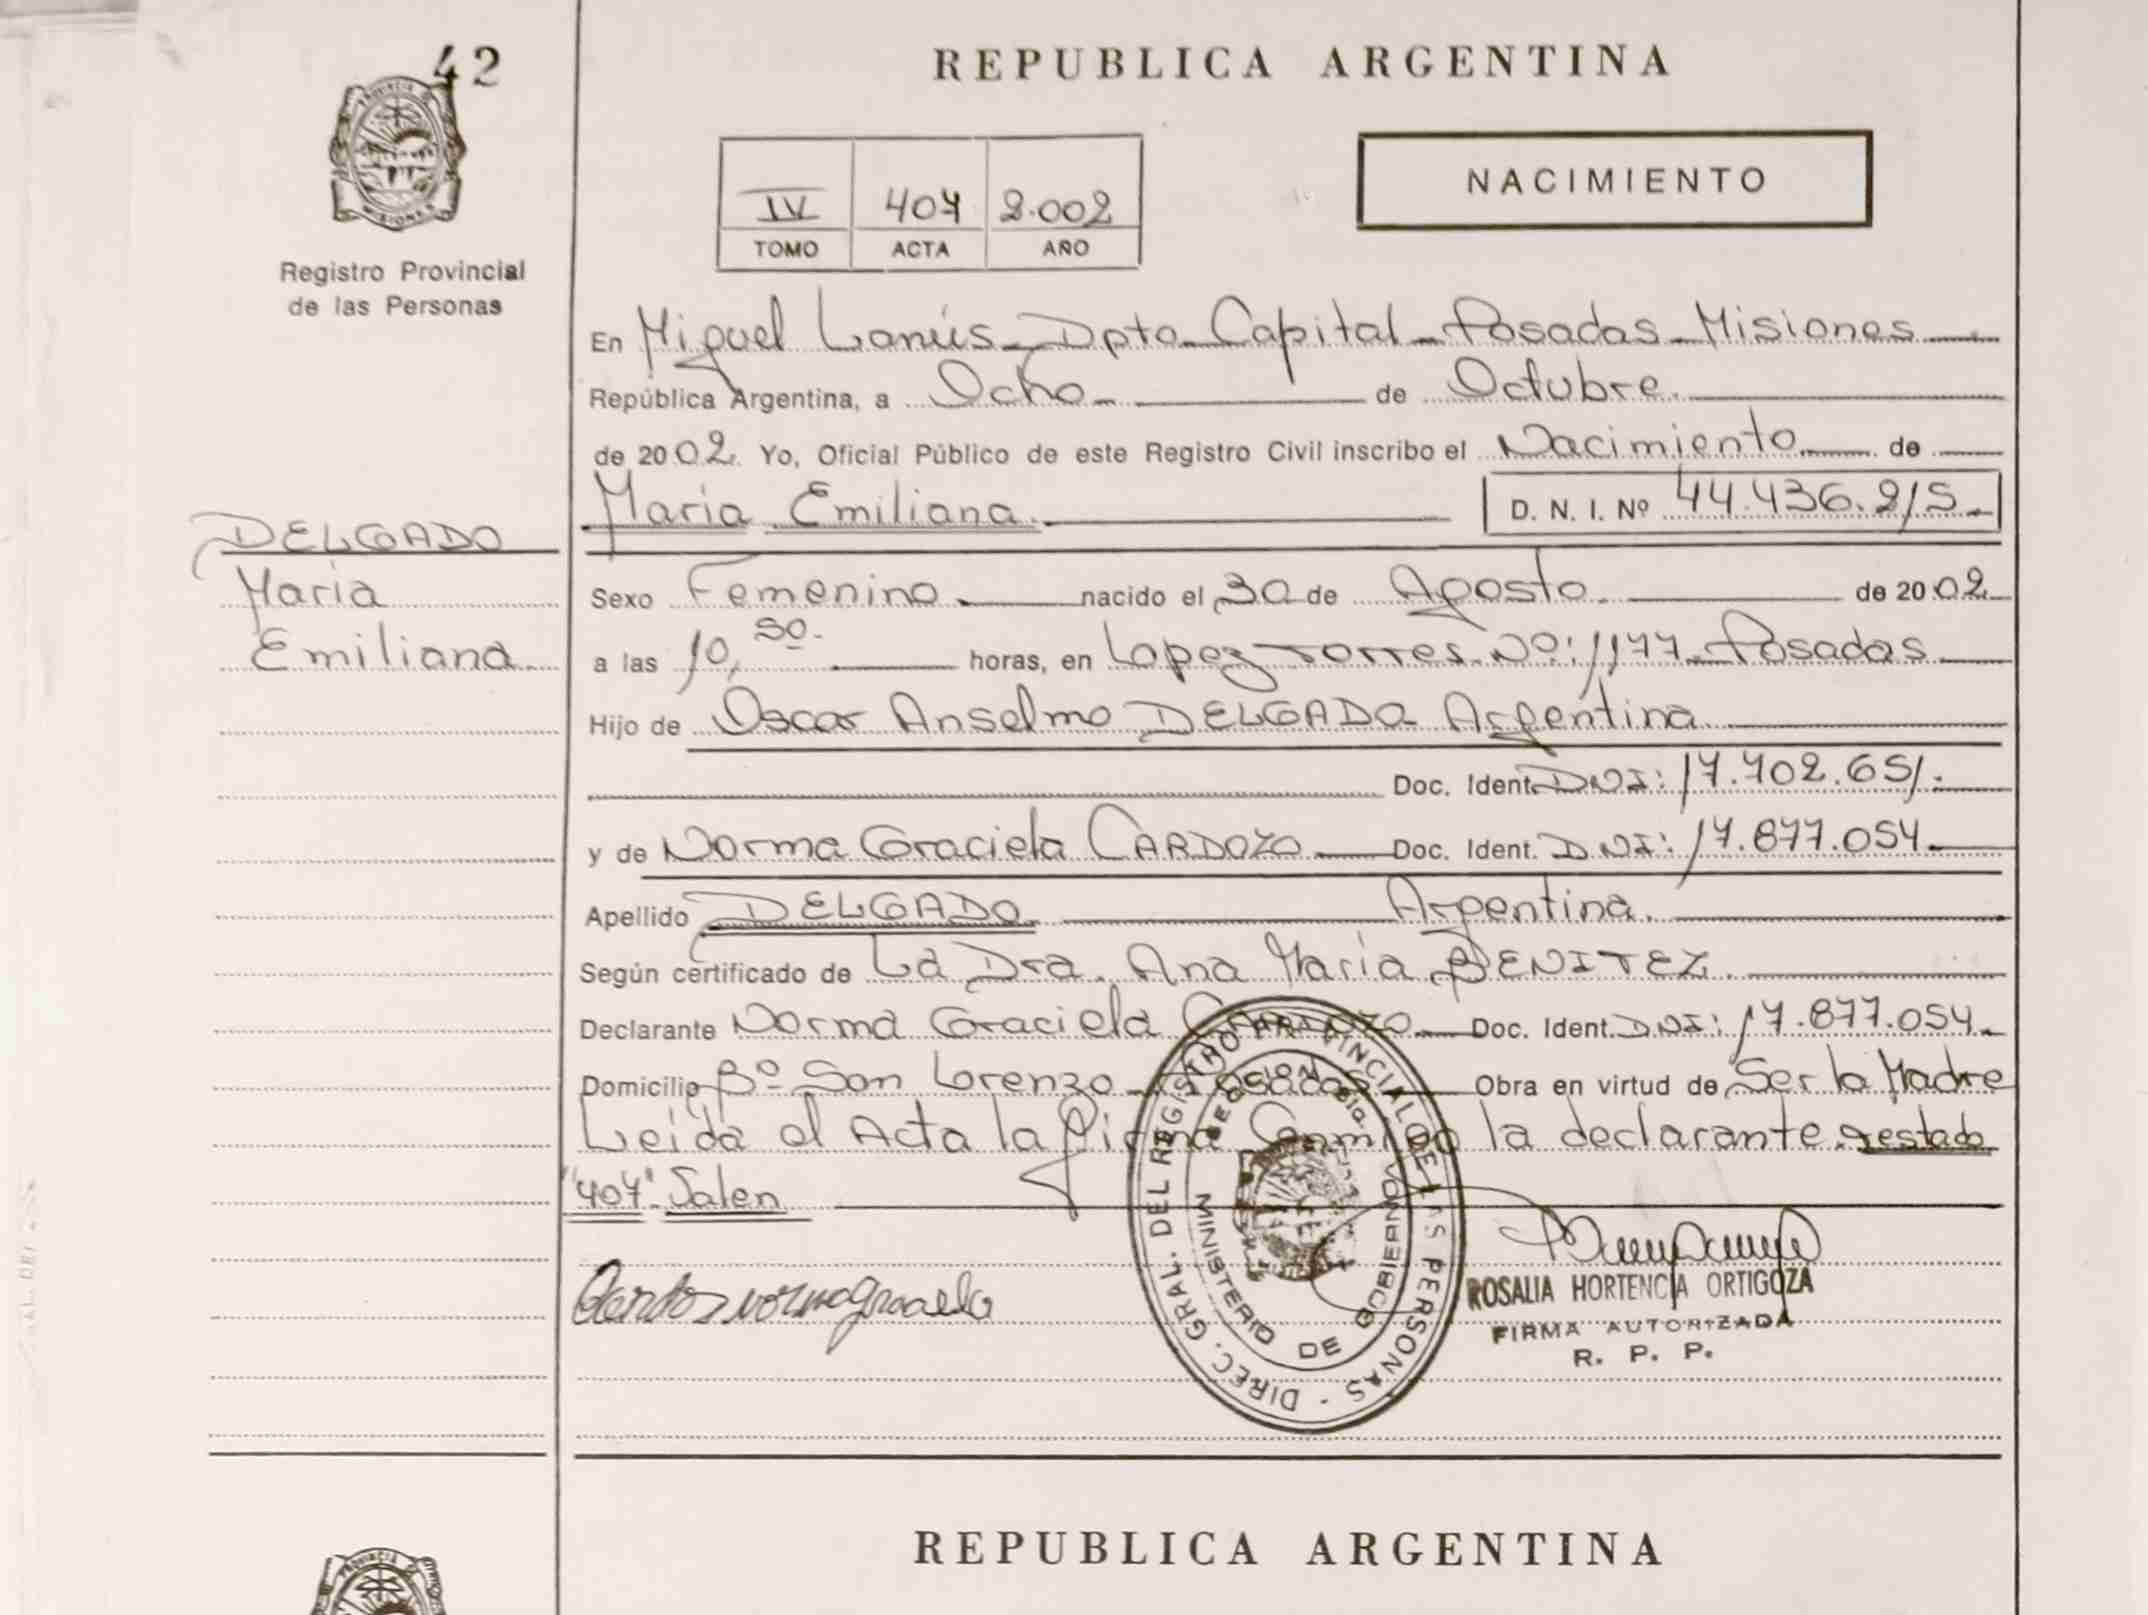 42
REPUBLICA ARGENTINA
PROVINCIA DE
MISIONES
Registro Provincial
de las Personas
IV 407 2.002
TOMO ACTA AÑO
NACIMIENTO
En Miguel Lanús - Dpto Capital - Posadas - Misiones
República Argentina, a Ocho de Octubre.
de 2002. Yo, Oficial Público de este Registro Civil inscribo el Nacimiento de
Maria Emiliana. D. N. I. Nº 44.436.215
DELGADO
Maria
Emiliana
Sexo Femenino nacido el 30 de Agosto de 2002
a las 10,50. horas, en Lopez Torres Nº: 1177 - Posadas
Hijo de Oscar Anselmo DELGADO Argentina
Doc. Ident. DNI: 17.702.651.
y de Norma Graciela CARDOZO Doc. Ident. DNI: 17.877.054
Apellido DELGADO Argentina.
Según certificado de La Dra. Ana María BENITEZ
Declarante Norma Graciela CARDOZO Doc. Ident. DNI: 17.877.054
Domicilio Bº San Lorenzo - Posadas Obra en virtud de Ser la Madre
Leída el Acta la Firma Conmigo la declarante. testado
"407" Salen
Cardozo norma graciela
DIREC. GRAL. DEL REGISTRO PROVINCIAL DE LAS PERSONAS -
MINISTERIO DE GOBIERNO
ROSALIA HORTENCIA ORTIGOZA
FIRMA AUTORIZADA
R. P. P.
REPUBLICA ARGENTINA
PROVINCIA